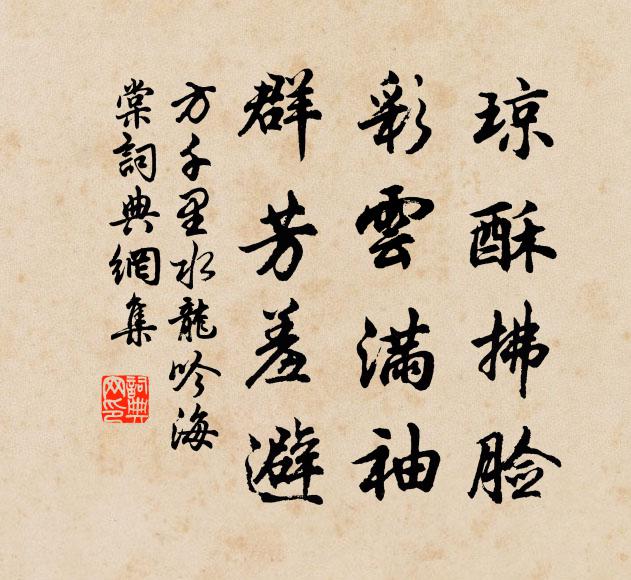 琼酥拂脸
彩雲滿袖
群芳羞避
方千里水龍吟海
棠詞典網集
詞典网印